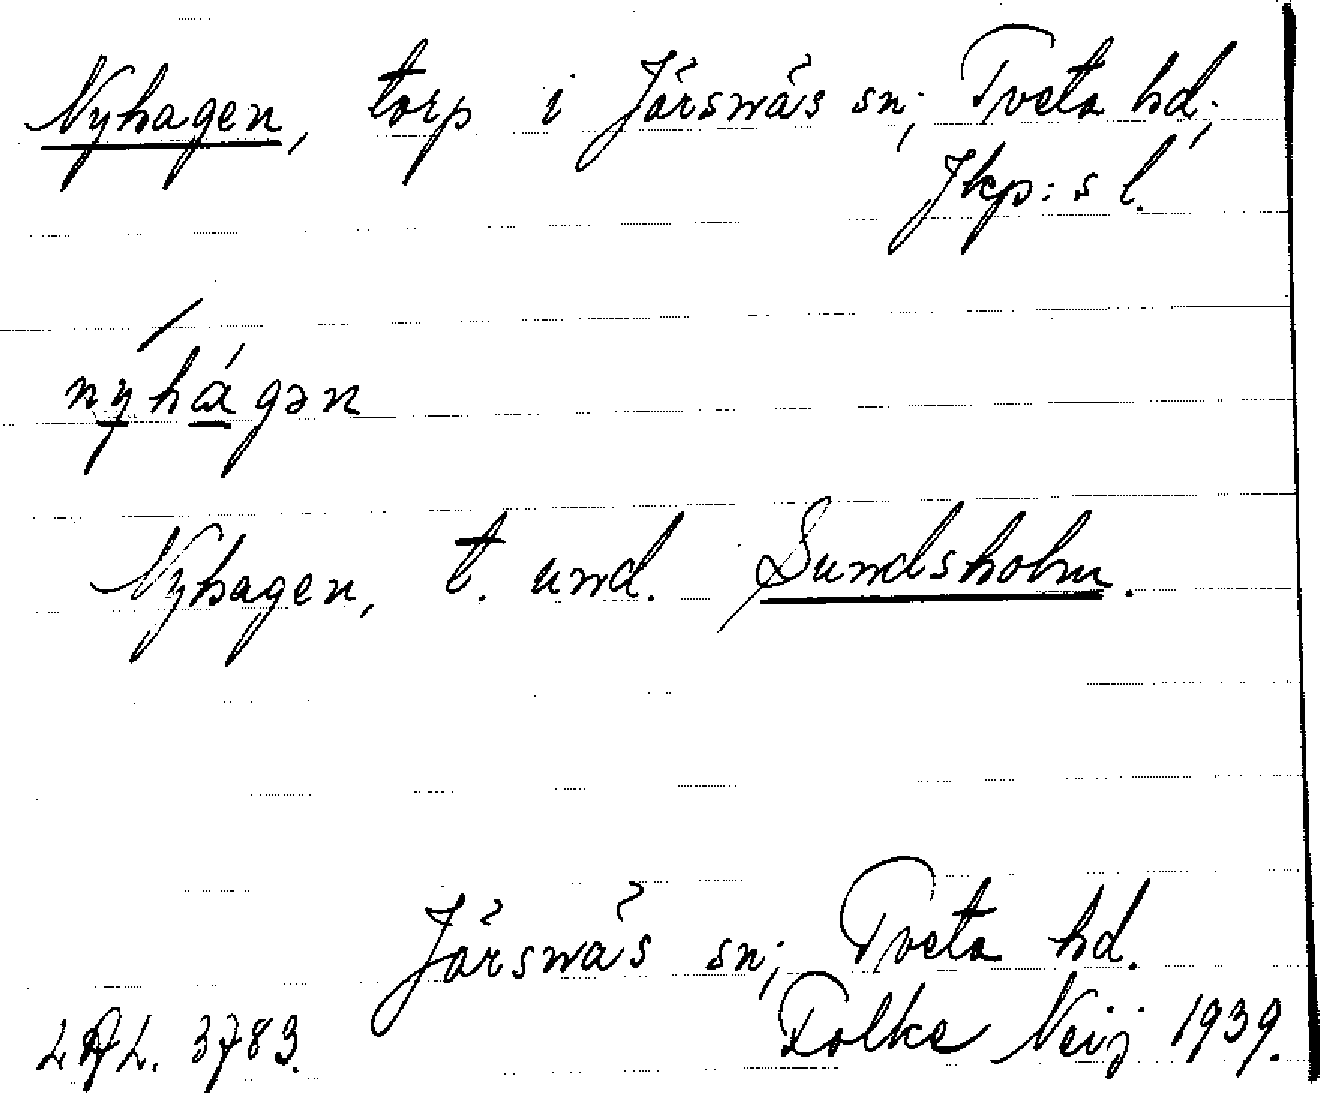 Nyhagen, torp i Järsnäs sn; Tveta hd;
Jkp:s l.
nýhágən
Nyhagen, t. und. Sundsholm.
Järsnäs sn; Tveta hd.
3783. Folke Neij 1939.